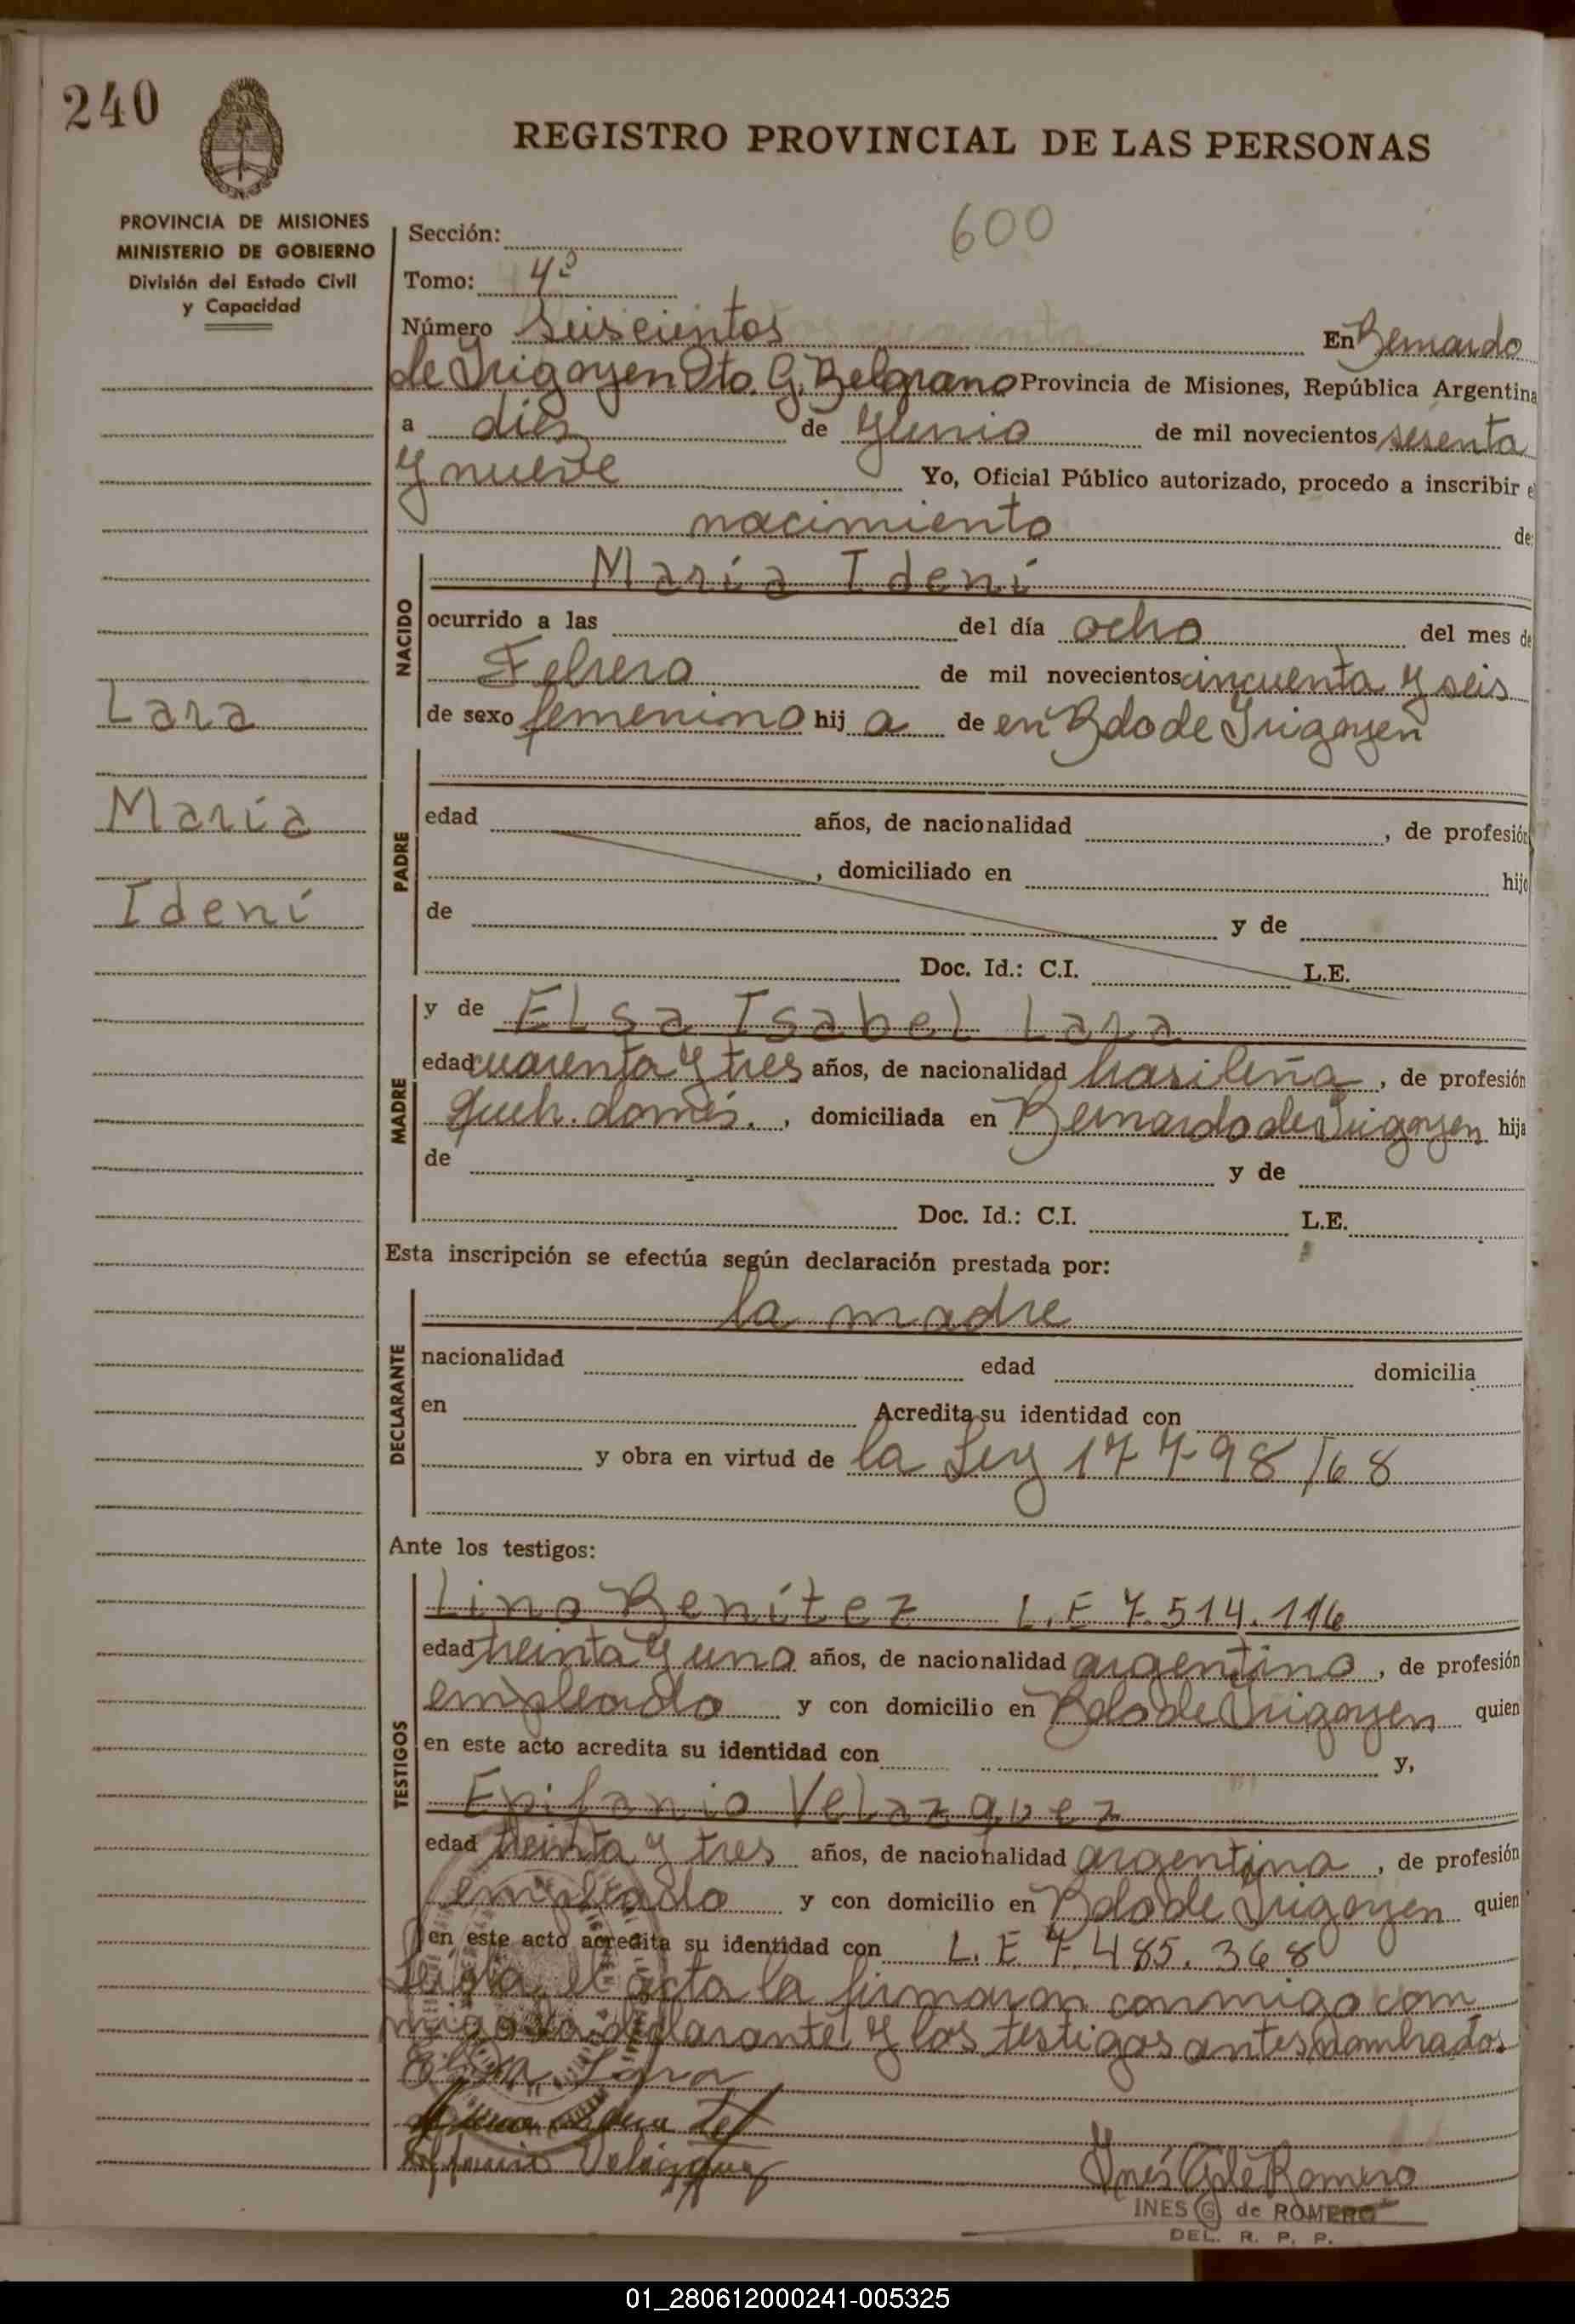 240
REGISTRO PROVINCIAL DE LAS PERSONAS
PROVINCIA DE MISIONES
MINISTERIO DE GOBIERNO
División del Estado Civil
y Capacidad
600
Sección:
Tomo: 4º
Número Seiscientos En Bernardo
de Irigoyen Dto. G. Belgrano Provincia de Misiones, República Argentina
a diez de Junio de mil novecientos sesenta
y nueve Yo, Oficial Público autorizado, procedo a inscribir e
nacimiento de:
NACIDO
María Idení
ocurrido a las del día ocho del mes de
Febrero de mil novecientos cincuenta y seis
de sexo femenino hij a de en Bdo de Irigoyen
Lara
María
Idení
PADRE
edad años, de nacionalidad , de profesión
, domiciliado en hijo
de y de
Doc. Id.: C.I. L.E.
MADRE
y de Elsa Isabel Lara
edad cuarenta y tres años, de nacionalidad brasileña, de profesión
queh. domés. , domiciliada en Bernardo de Irigoyen hija
de y de
Doc. Id.: C.I. L.E.
Esta inscripción se efectúa según declaración prestada por:
DECLARANTE
la madre
nacionalidad edad domicilia
en Acredita su identidad con
y obra en virtud de la Ley 17798/68
Ante los testigos:
TESTIGOS
Lino Benítez L.E 7.514.116
edad treinta y uno años, de nacionalidad argentino, de profesión
empleado y con domicilio en Bdo de Irigoyen quien
en este acto acredita su identidad con y,
Epifanio Velazquez
edad treinta y tres años, de nacionalidad argentina, de profesión
empleado y con domicilio en Bdo de Irigoyen quien
en este acto acredita su identidad con L.E 7.485.368
Leída el acta la firmaron conmigo com
migo la declarante y los testigos antes nombrados
Lara
Velázquez
Inés G de Romero
INES G de ROMERO
DEL. R. P. P.
01_280612000241-005325